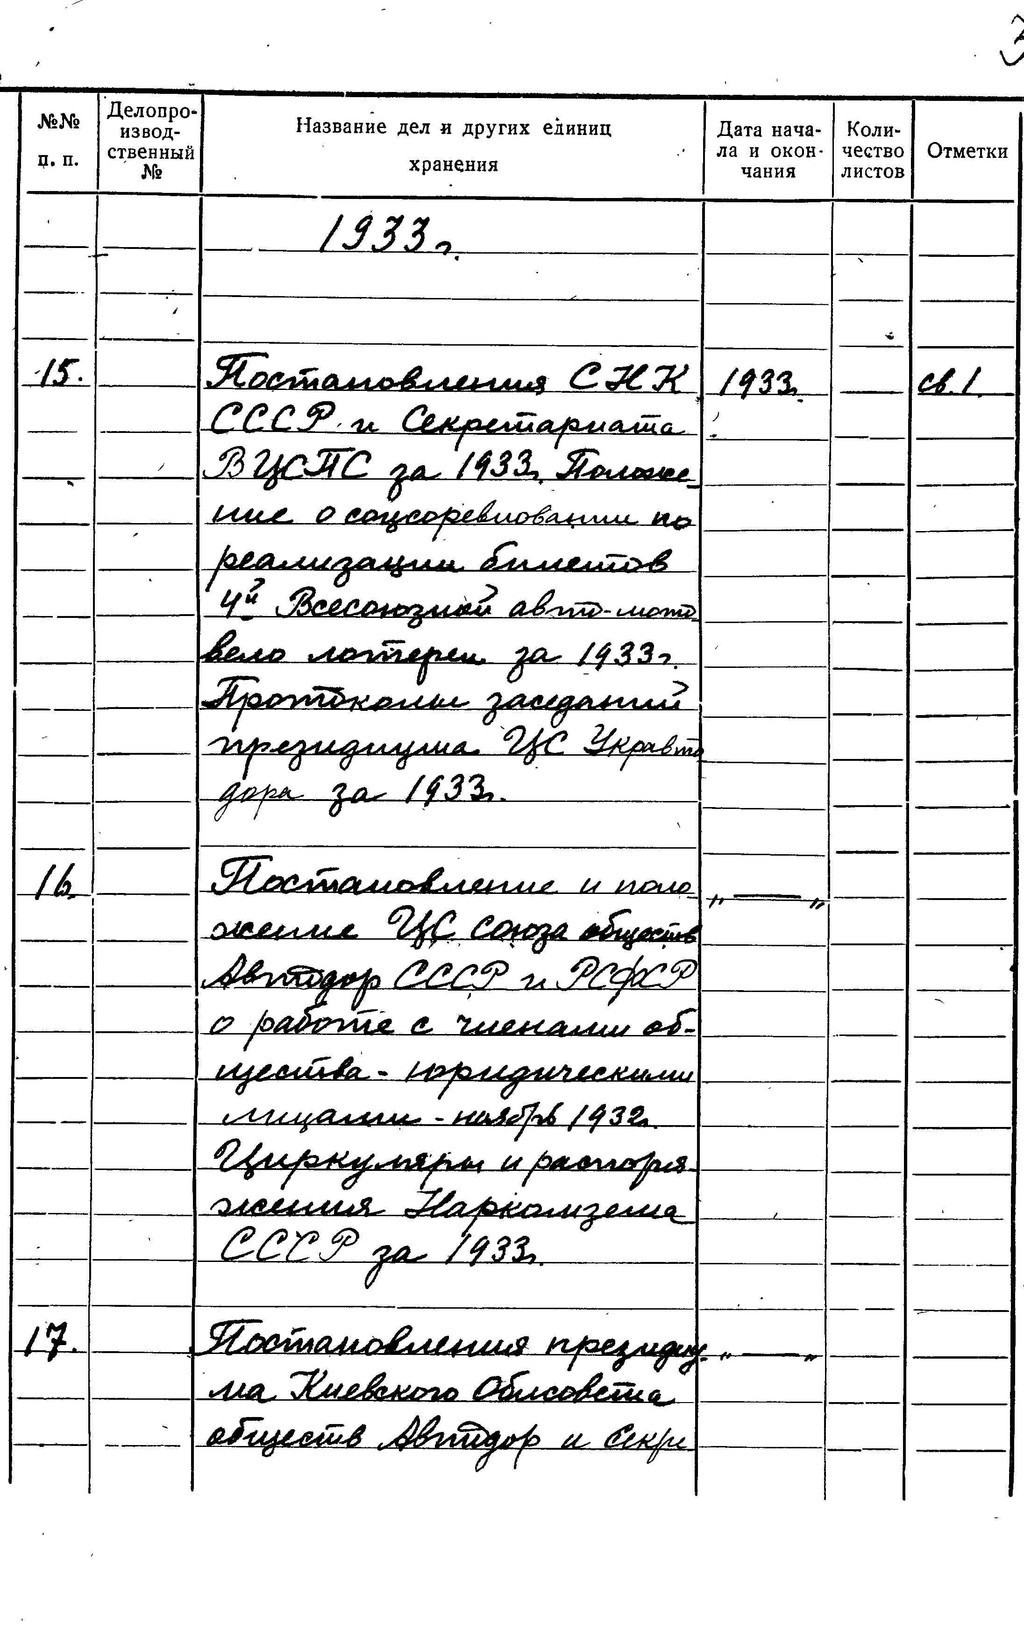 3
№№ п. п. Делопро-извод-ственный № Название дел и других единиц хранения Дата нача-ла и окон-чания Коли-чество листов Отметки
1933г.
15. Постановления СНК 1933г. св.1.
СССР и Секретариата
ВЦСПС за 1933г. Положе-
ние о соцсоревновании по
реализации билетов
4й Всесоюзной авто-мото
вело лотереи за 1933г.
Протоколы заседаний
президиума ЦС Укравто
дора за 1933г.
16. Постановление и поло „ — „
жение ЦС союза обществ
Автодор СССР и РСФСР
о работе с членами об-
щества - юридическими
лицами - ноябрь 1932г.
Циркуляры и распоря-
жения Наркомзема
СССР за 1933г.
17. Постановления президиу- „ — „
ма Киевского Облсовета
обществ Автодор и Секре